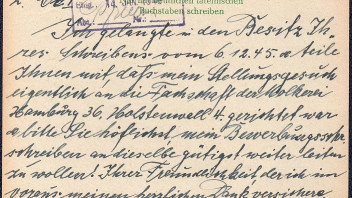 lateinischen
Buchstaben schreiben
Ich gelangte in den Besitz Ih=
res Schreibens vom 6.12.45. & teile
Ihnen mit, daß mein Stellungsgesuch
eigentlich an die Fachschaft der Molkerei
Hamburg 36, Holstenwall 4, gerichtet war
& bitte Sie höflichst mein Bewerbungs
schreiben an dieselbe gütigst weiter leiten
zu wollen! Ihrer Freundlichkeit der ich im
voraus meinen herzlichen Dank versichere